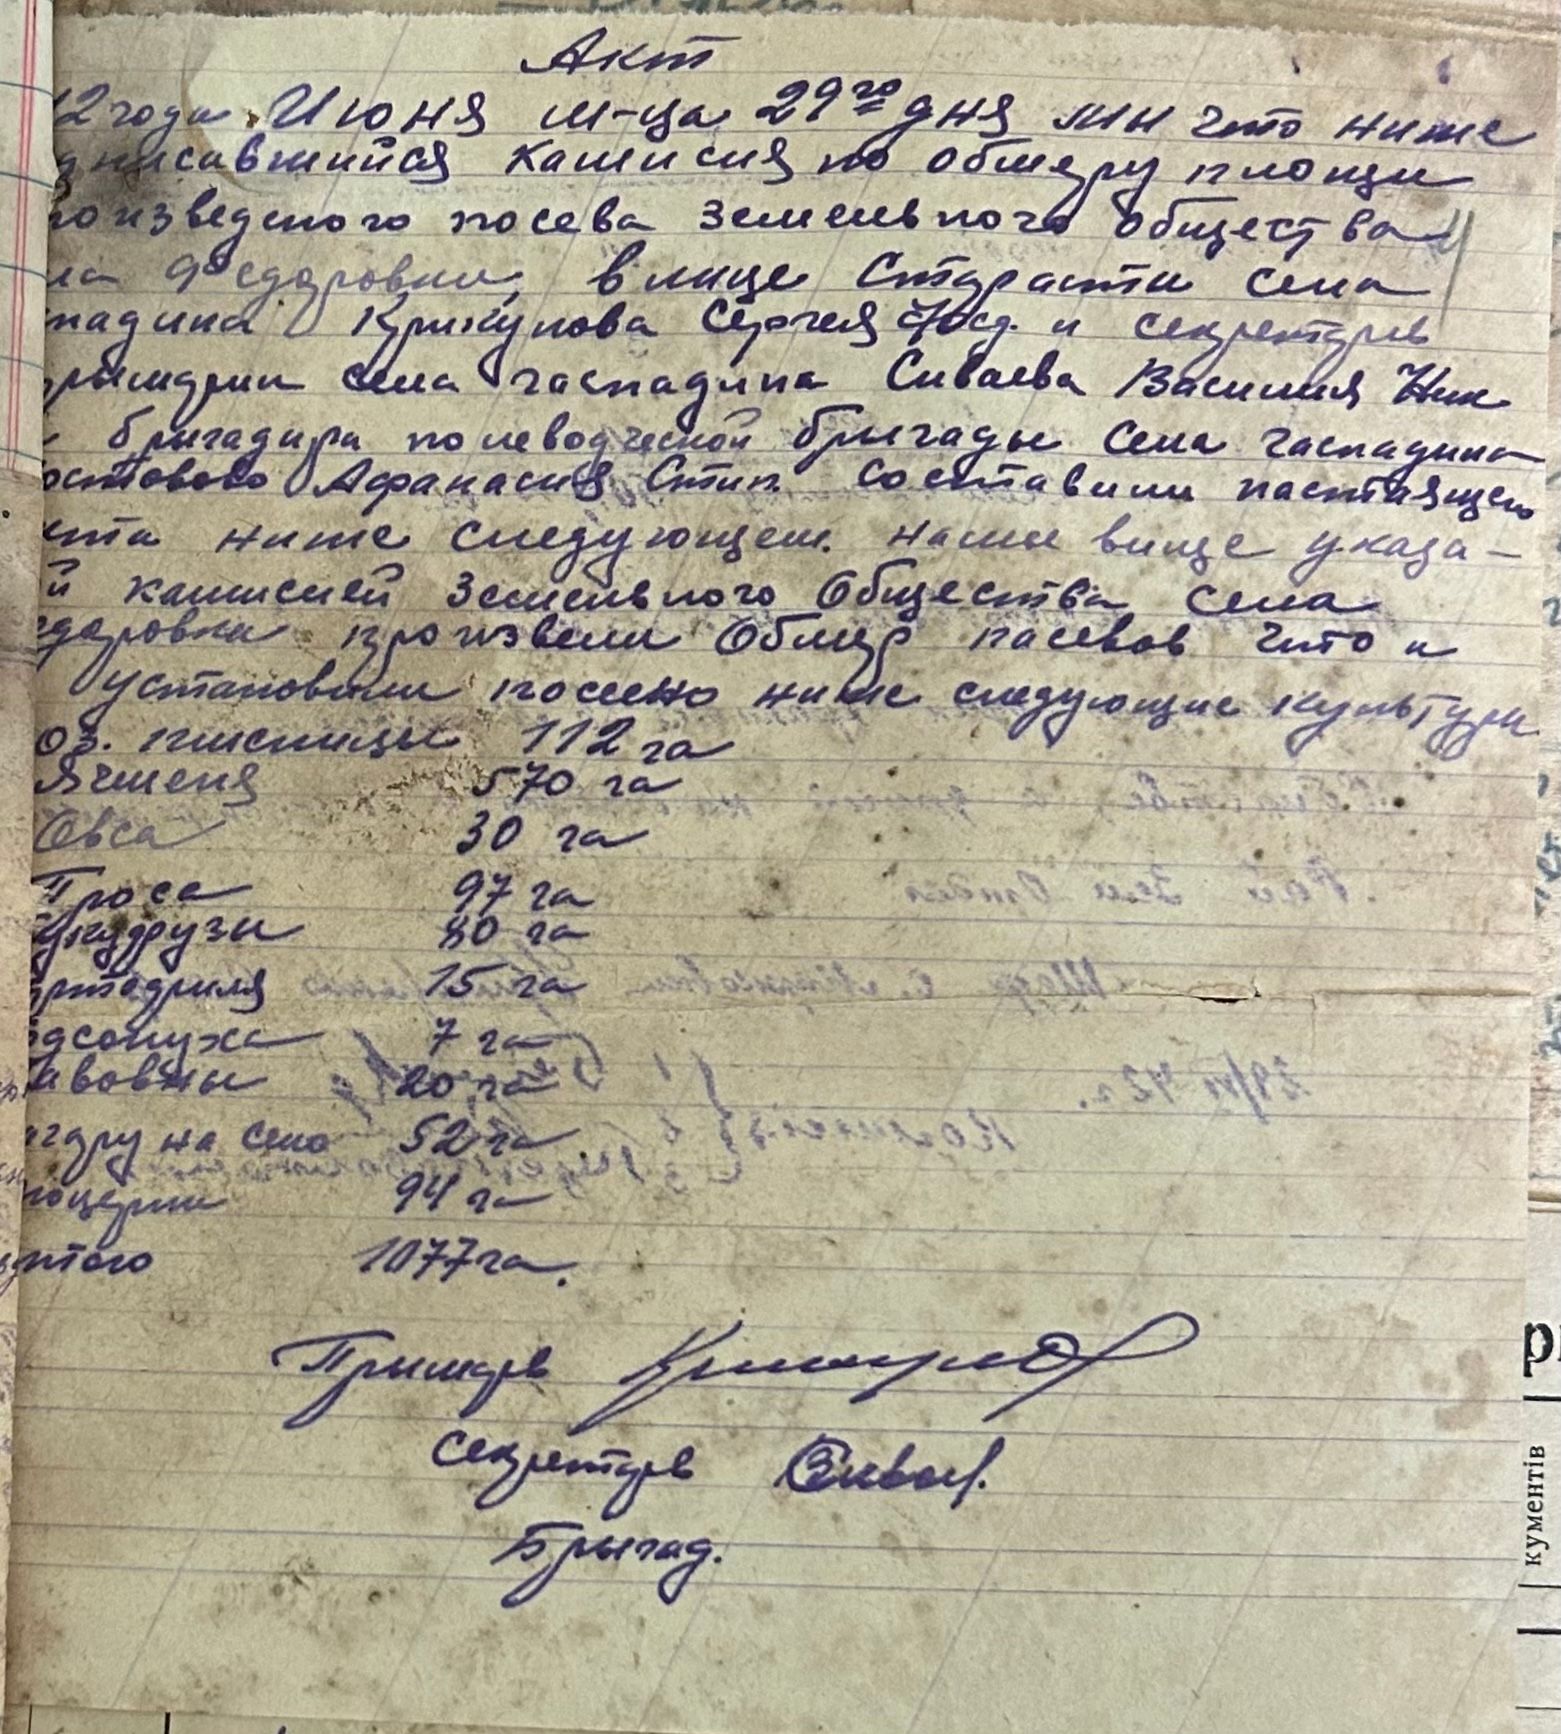 Акт
42 года Июня м-ца 29го дня мы что ниже
дписавшийся камисия по обмеру площи
роизведеного посева земельного общества
ла Федоровки, в лице Старасти села
падина Крикунова Сергея Фед. и секретарев
села гаспадина Сиваева Василия Ник
бригадира полеводческой брыгады села гаспадина
остового Афанасия Стип. составили настаящего
кта ниже следующем. нами више указа-
й камисией земельного Общества села
едоровка произвели Обмер пасевов что и
установили посеено ниже следующие культури
оз. пшеницы 112 га
Ячменя 570 га
Овса 30 га
Проса 97 га
укурузы 80 га
15 га
одсонуха 7 га
20 га
на сено 52 га
юцерни 94 га
итого 1077 га.
Прымарь
Секретарь
Брыгад.
29/VI 42 г.
кументів